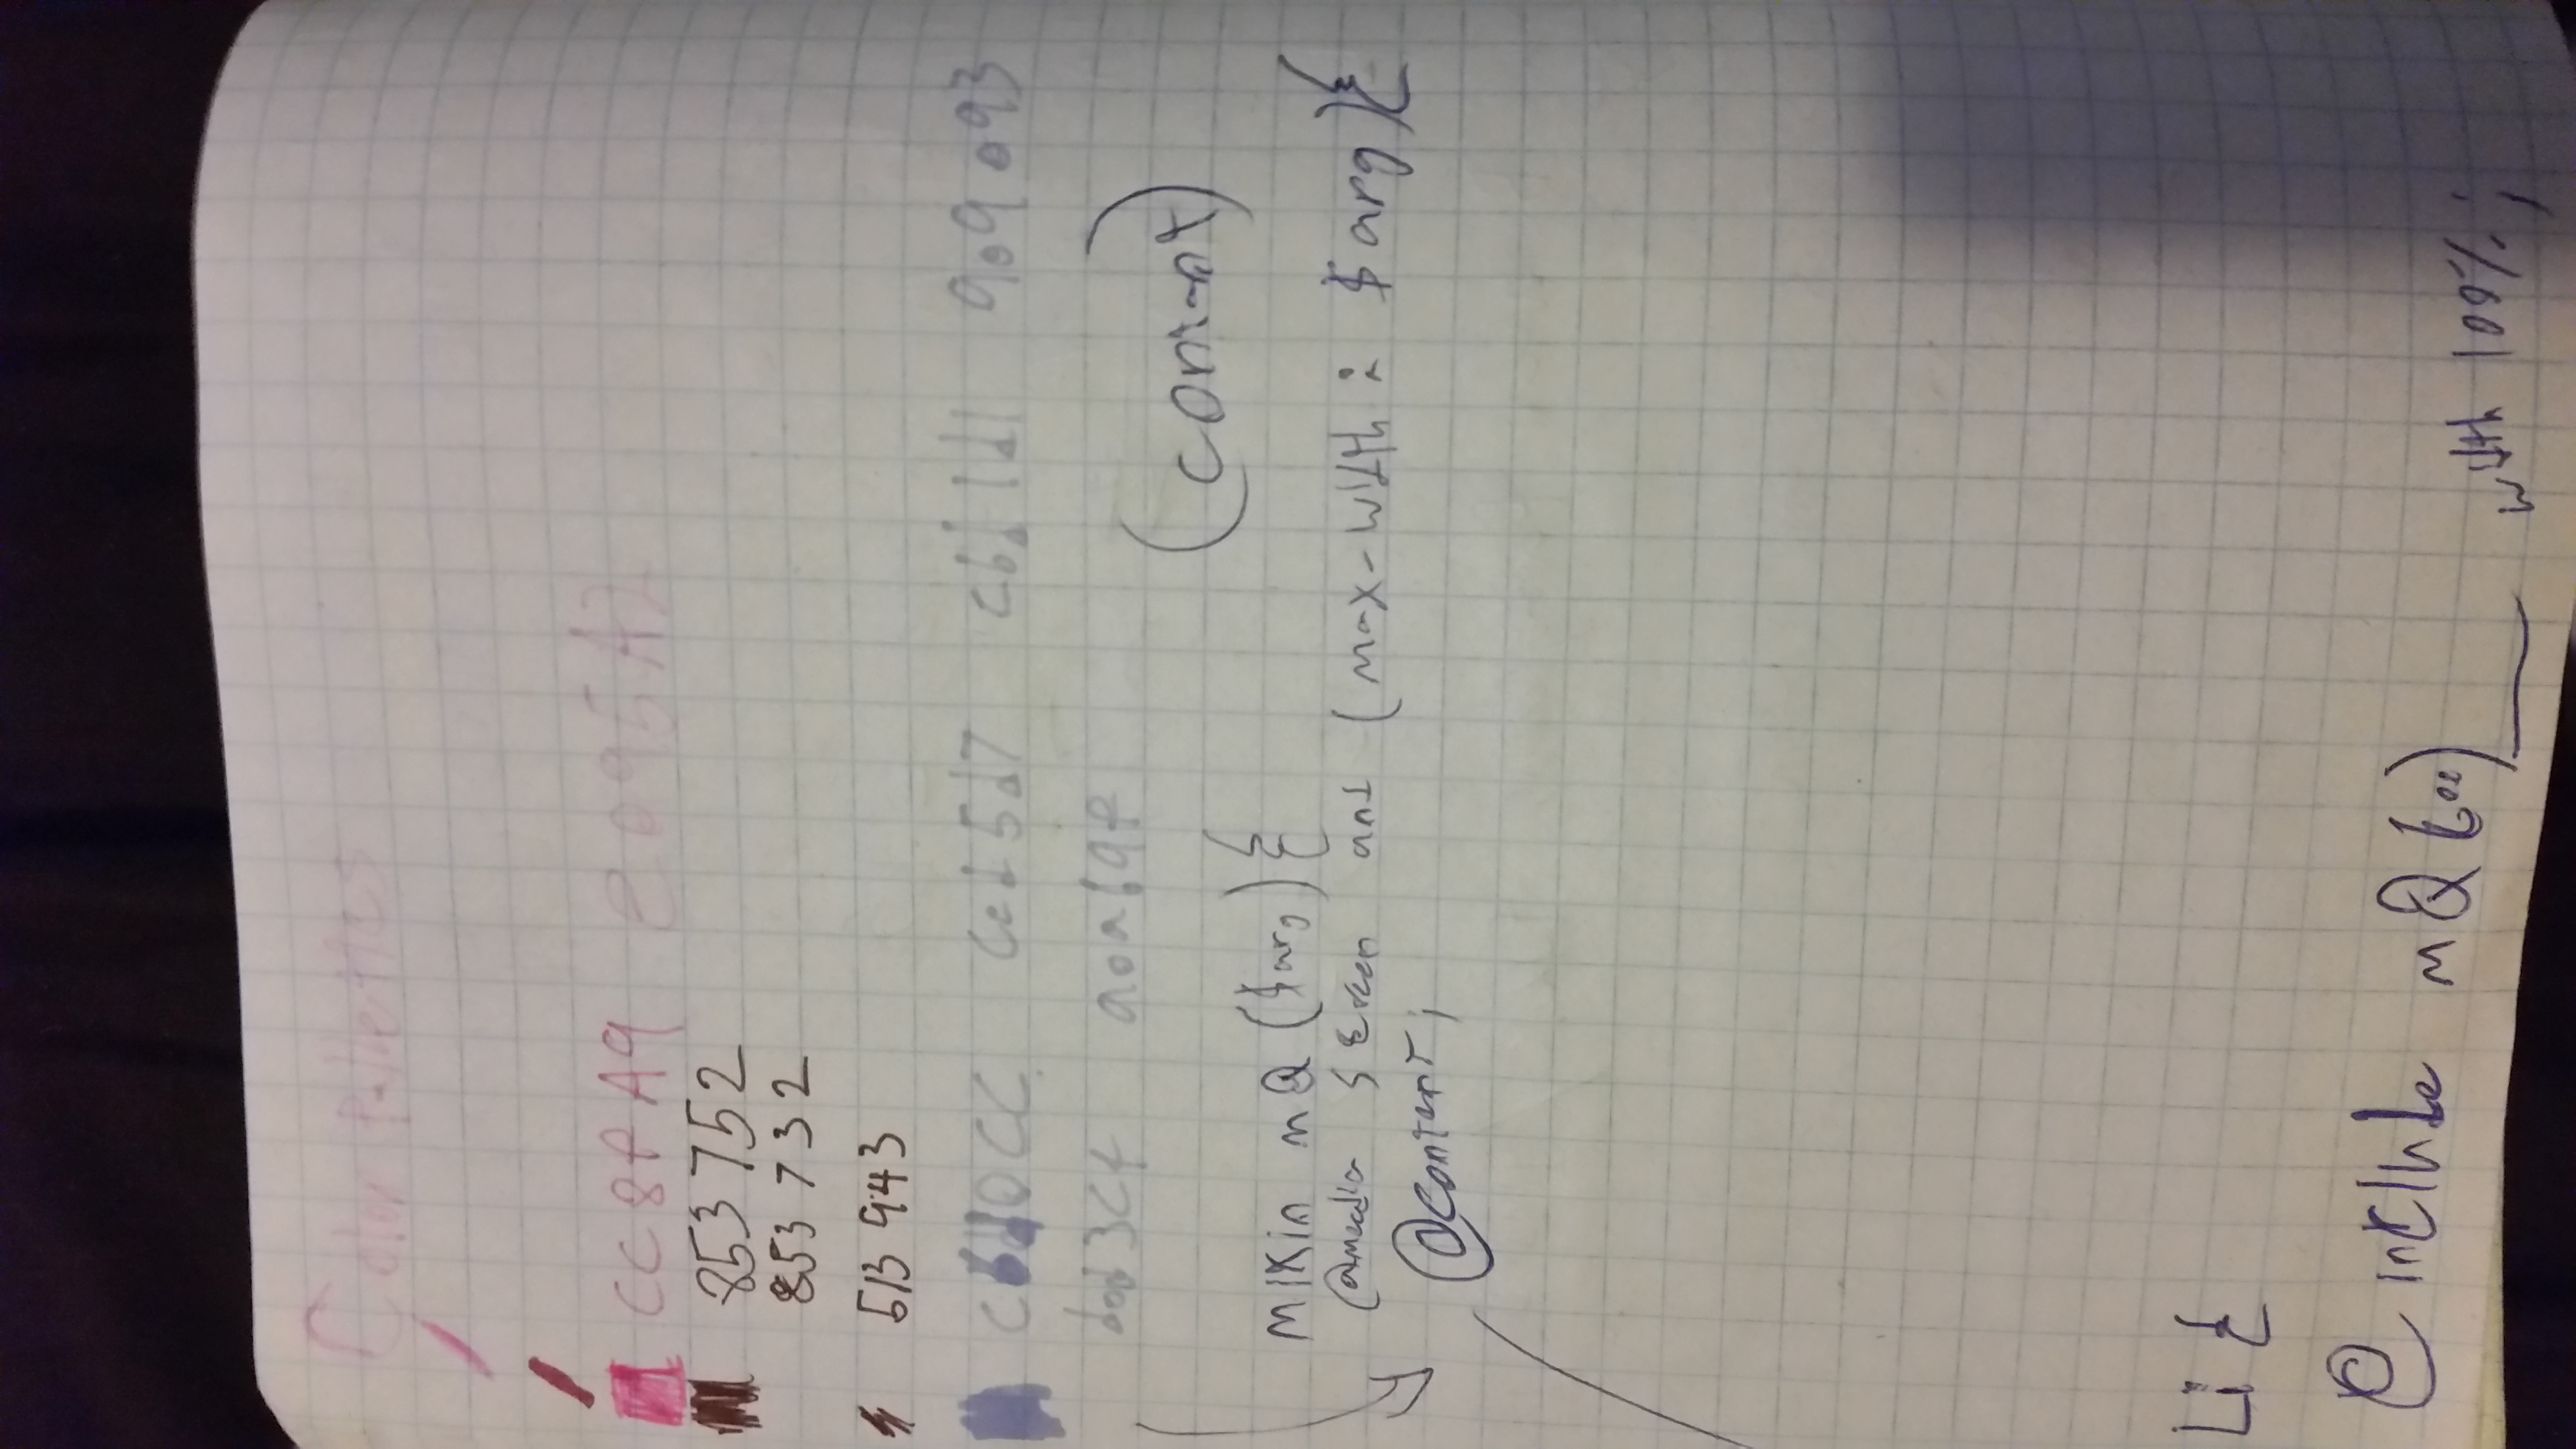 Color Pallettes
CC8fA9 e095A2
853752
853732
513943
c6d0CC ced5d7 cbd1d1 909093
d0d3cf a0a69f
(content)
mixin mQ ($arg){
@media screen and (max-width: $arg){
@content;
Li {
@include mQ(600) width 100%;